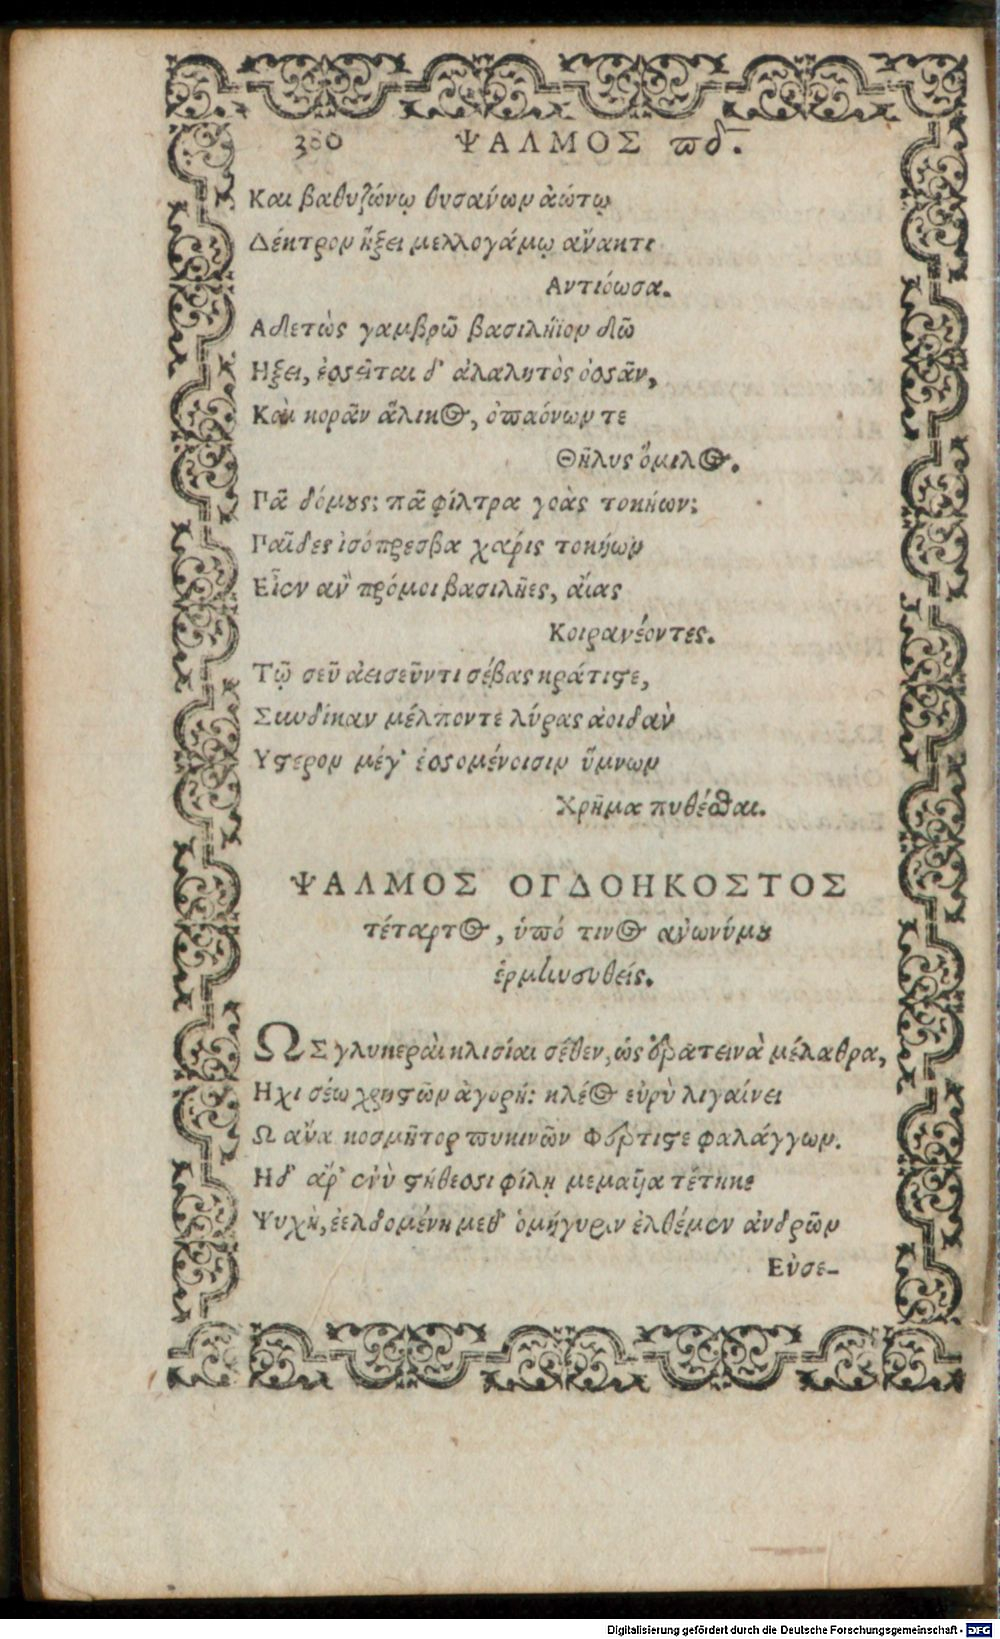 360 ΨΑΛΜΟΣ πδ.
Και βαθυζώνῳ θυσανών ἀώτῳ
Δέκτρον ἥξει μελλογάμῳ ἄνακτι
Αντιόωσα.
Αδετὼς γαμβρῶ βασιλήϊον δῶ
Ηξει, ἐσεῖται δ' ἀλαλητὸς ὀσᾶν,
Καὶ κορᾶν ἅλικος, ὀπαόνων τε
Θῆλυς ὅμιλος.
Πᾶ δόμους; πᾶ φίλτρα γοᾶς τοκήων;
Παῖδες ἰσόπρεσβα χάρις τοκήων
Εἶεν ἂν πρόμοι βασιλῆες, αἴας
Κοιρανέοντες.
Τῷ σεῦ ἀεισεῦντι σέβας κράτιστε,
Σὺν δίκαν μέλποντε λύρας ἀοιδὰν
Υστερον μέγ' ἐσομένοισιν ὕμνων
Χρῆμα πυθέσθαι.
ΨΑΛΜΟΣ ΟΓΔΟΗΚΟΣΤΟΣ
τέταρτος, ὑπό τινος ἀνωνύμου
ἑρμηνευθείς.
ΩΣ γλυκεραὶ κλισίαι σέθεν, ὡς ἐρατεινὰ μέλαθρα,
Ηχι σέω χρηστῶν ἀγορή: κλέος εὐρὺ λιγαίνει
Ω ἄνα κοσμῆτορ πυκινῶν φέρτιστε φαλάγγων.
Ηδ' ἄρ' ἐνὶ στήθεσσι φίλη μεμαῦια τέτηκε
Ψυχὴ, ἐελδομένη μεθ' ὁμήγυριν ἐλθέμεν ἀνδρῶν
Εὐσε-
Digitalisierung gefördert durch die Deutsche Forschungsgemeinschaft - DFG